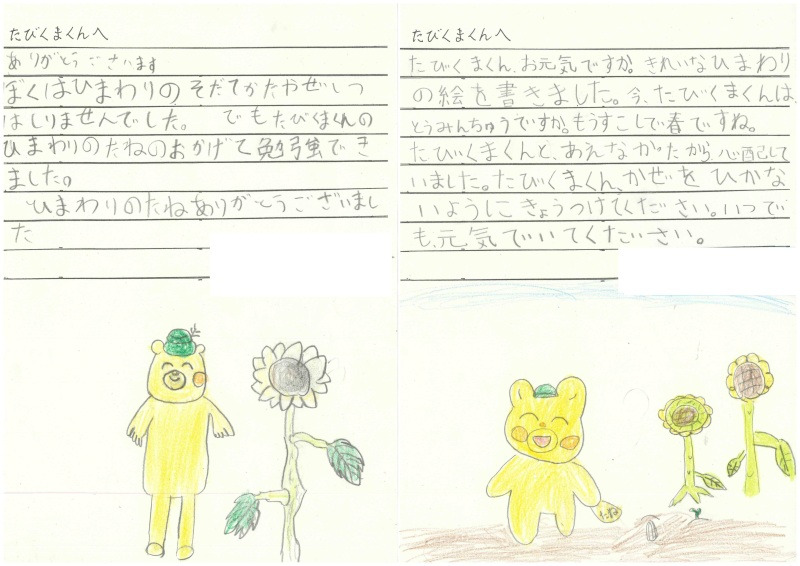 たびくまくんへ
ありがとうございます
ぼくはひまわりのそだてかたやぜいしつ
はしりませんでした。 でもたびくまくんの
ひまわりのたねのおかげで勉強でき
ました。
ひまわりのたねありがとうございまし
た
たびくまくんへ
たびくまくん、お元気ですか。きれいなひまわり
の絵を書きました。今、たびくまくんは、
とうみんちゅうですか。もうすこしで春ですね。
たびくまくんと、あえなかったから、心配して
いました。たびくまくん、かぜをひかな
いようにきょうつけてください。いつで
も、元気でいてください。
たね